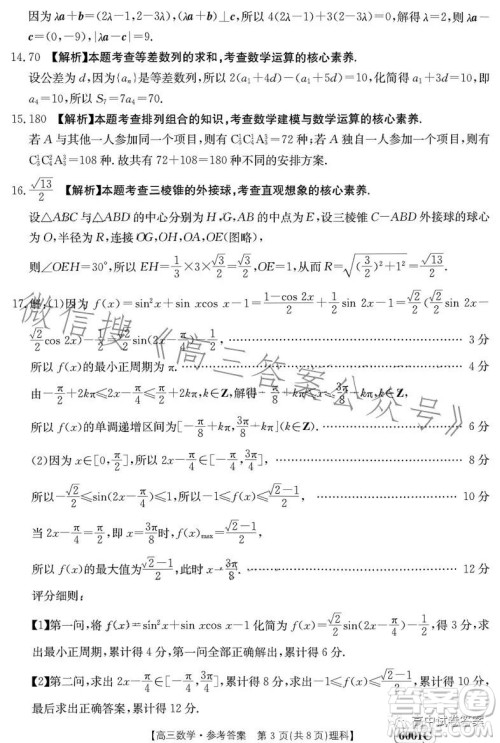 λa+b=(2λ-1,2-3λ).因为(λa+b)⊥c,所以4(2λ-1)+2(2-3λ)=0,解得λ=0,故λa-
c=(0,-9),|λa-c|=9.
14.70 【解析】本题考查等差数列的求和,考查数学运算的核心素养.
设公差为d,因为{aₙ}是等差数列,所以2(a₁+4d)-(a₁+5d)=10,化简得a₁+3d=10,即
a₄=10,所以S₇=7a₄=70.
15.180 【解析】本题考查排列组合的知识,考查数学建模与数学运算的核心素养.
若A与其他一人参加同一个项目,则有C₃¹C₄¹A₃³=72种;若A独自一人参加一个项目,则有
种.故共有72+108=180种不同的安排方案.
16.√13/2 【解析】本题考查三棱锥的外接球,考查直观想象的核心素养.
设△ABC与△ABD的中心分别为H,G,AB的中点为E,设三棱锥C-ABD外接球的球心
为O,半径为R,连接OG,OH,OA,OE(图略),
则∠OEH=30°,所以EH=1/3×3×√3/2=√3/2,OE=1,从而R=√((3/2)²+1²)=√13/2.
17.解:(1)因为f(x)=sin²x+sin xcos x-1=(1-cos 2x)/2+1/2 sin 2x-1=√2/2(√2/2 sin 2x-
√2/2 cos 2x)-1/2=√2/2 sin(2x-π/4)-1/2, 3分
所以f(x)的最小正周期为π. 4分
由-π/2+2kπ≤2x-π/4≤π/2+2kπ,k∈Z,解得-π/8+kπ≤x≤3π/8+kπ,k∈Z,
所以f(x)的单调递增区间为[-π/8+kπ,3π/8+kπ](k∈Z). 6分
(2)因为x∈[0,π/2],所以2x-π/4∈[-π/4,3π/4], 8分
所以-√2/2≤sin(2x-π/4)≤1,所以-1≤f(x)≤(√2-1)/2. 10分
当2x-π/4=π/2,即x=3π/8时,f(x)max=(√2-1)/2,
所以f(x)的最大值为(√2-1)/2,此时x=3π/8. 12分
评分细则:
【1】第一问,将f(x)=sin²x+sin xcos x-1化简为f(x)=√2/2 sin(2x-π/4)-1/2,得3分,求
出最小正周期,累计得4分,写出单调递增区间,累计得6分.
【2】第二问,求出2x-π/4∈[-π/4,3π/4],累计得8分,求出-1≤f(x)≤(√2-1)/2,累计得
10分,求出最大值,累计得12分.
【高三数学·参考答案 第3页(共8页)理科】 6001C
微信搜《高三答案公众号》
高中试卷答案